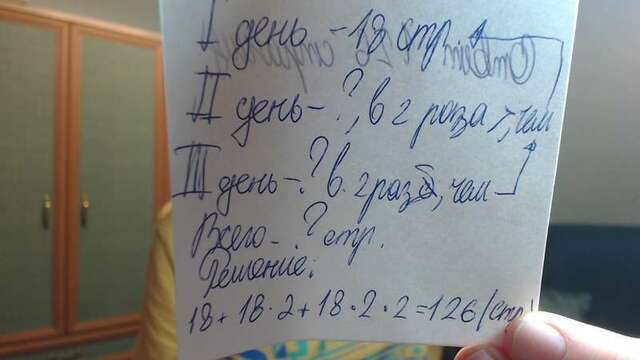 I день - 18 стр.
II день - ?, в 2 раза >, чем
III день - ? в 2 раза, чем
Всего - ? стр.
Решение:
18 + 18 · 2 + 18 · 2 · 2 = 126 (стр.)